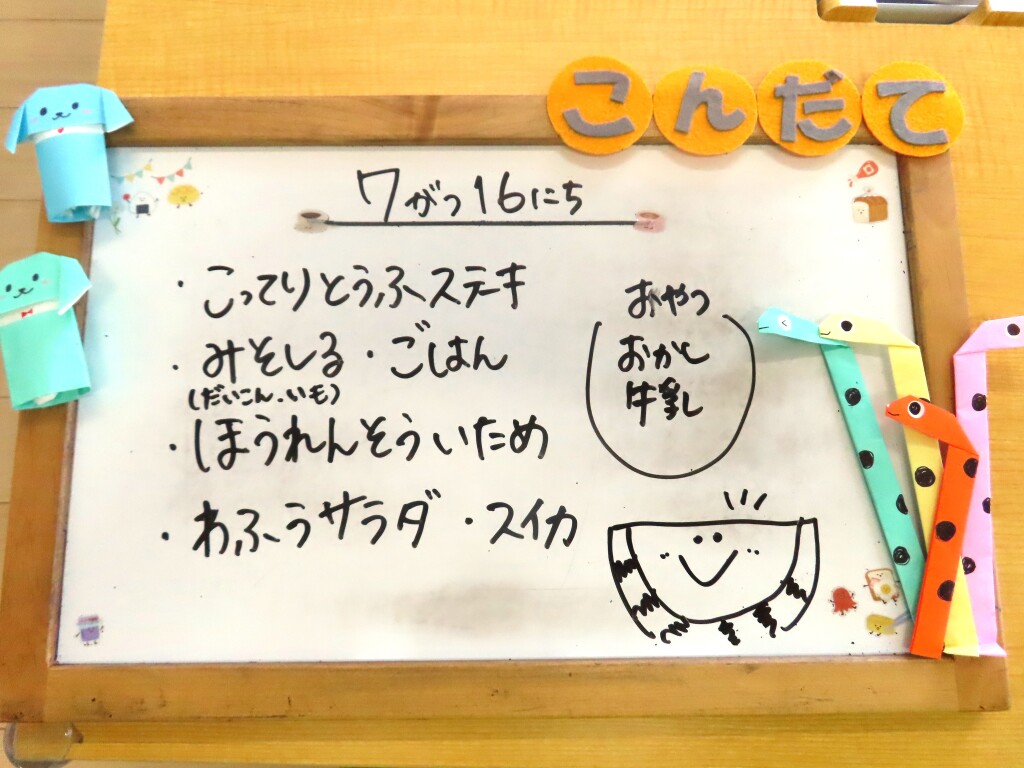 こんだて
7がつ16にち
・こってりとうふステーキ
・みそしる・ごはん
(だいこん、いも)
・ほうれんそういため
・わふうサラダ・スイカ
おやつ
おかし
牛乳